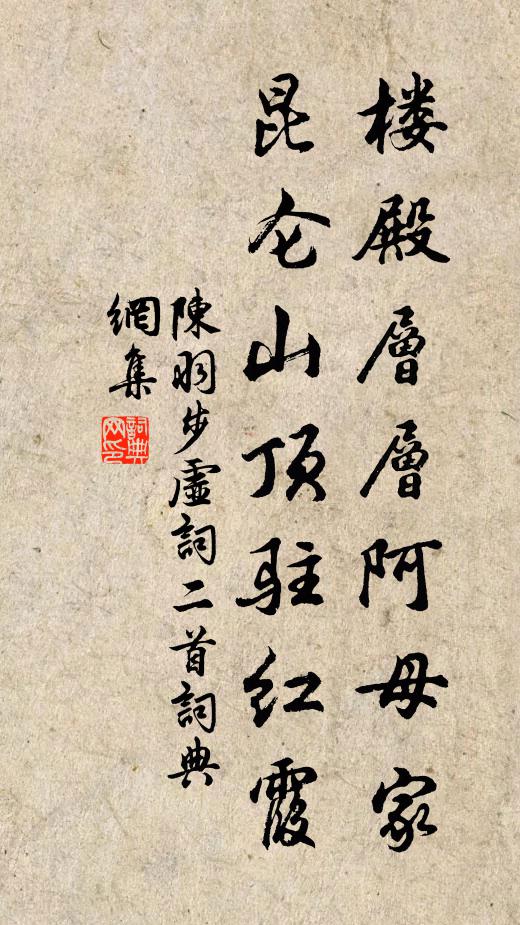 楼殿層層阿母家
昆仑山顶驻红霞
陳羽步虛詞二首詞典
網集
詞典网印